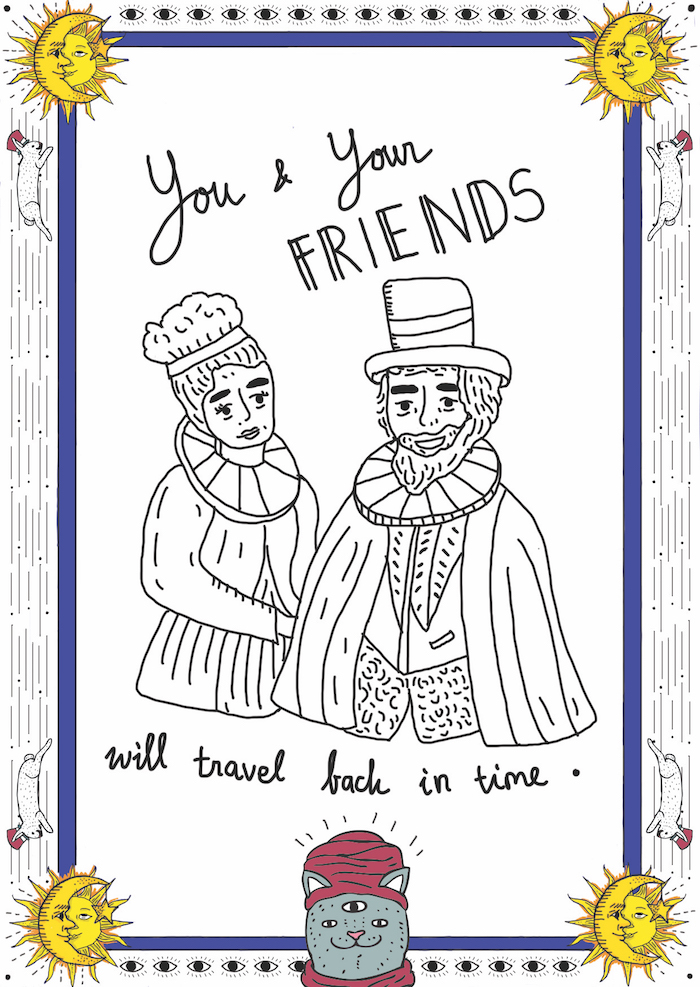 You & Your
FRIENDS
will travel back in time.